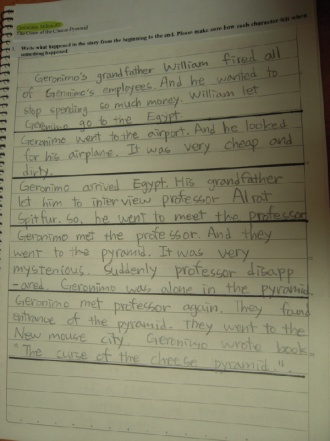 The Curse of the Cheese Pyramid
Write what happened in the story from the beginning to the end. Please make sure how each character felt when
something happened.
Geronimo's grandfather William fired all
of Geronimo's employees. And he wanted to
stop spending so much money. William let
Geronimo go to the Egypt.
Geronimo went to the airport. And he looked
for his airplane. It was very cheap and
dirty.
Geronimo arrived Egypt. His grandfather
let him to interview professor Alrat
Spitfur. So, he went to meet the professor
Geronimo met the professor. And they
went to the pyramid. It was very
mysterious. Suddenly professor disapp
-ared. Geronimo was alone in the pyramid.
Geronimo met professor again. They found
entrance of the pyramid. They went to the
New mouse city. Geronimo wrote book
"The curse of the cheese pyramid".